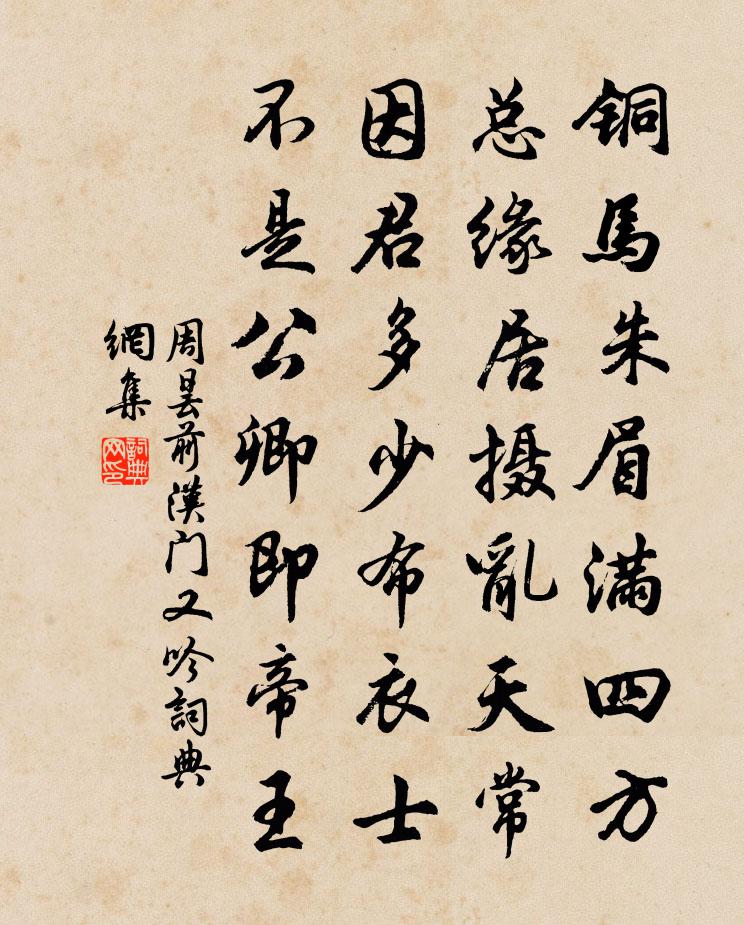 铜馬朱眉满四方
总缘居摄亂天常
因君多少布衣士
不是公卿即帝王
周曇前漢门又吟詞典
網集
詞典
网印